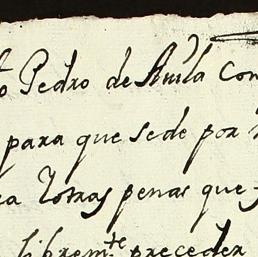 Pedro de Avila Con
para que sede por
a Y otras penas que
librem.te preceder